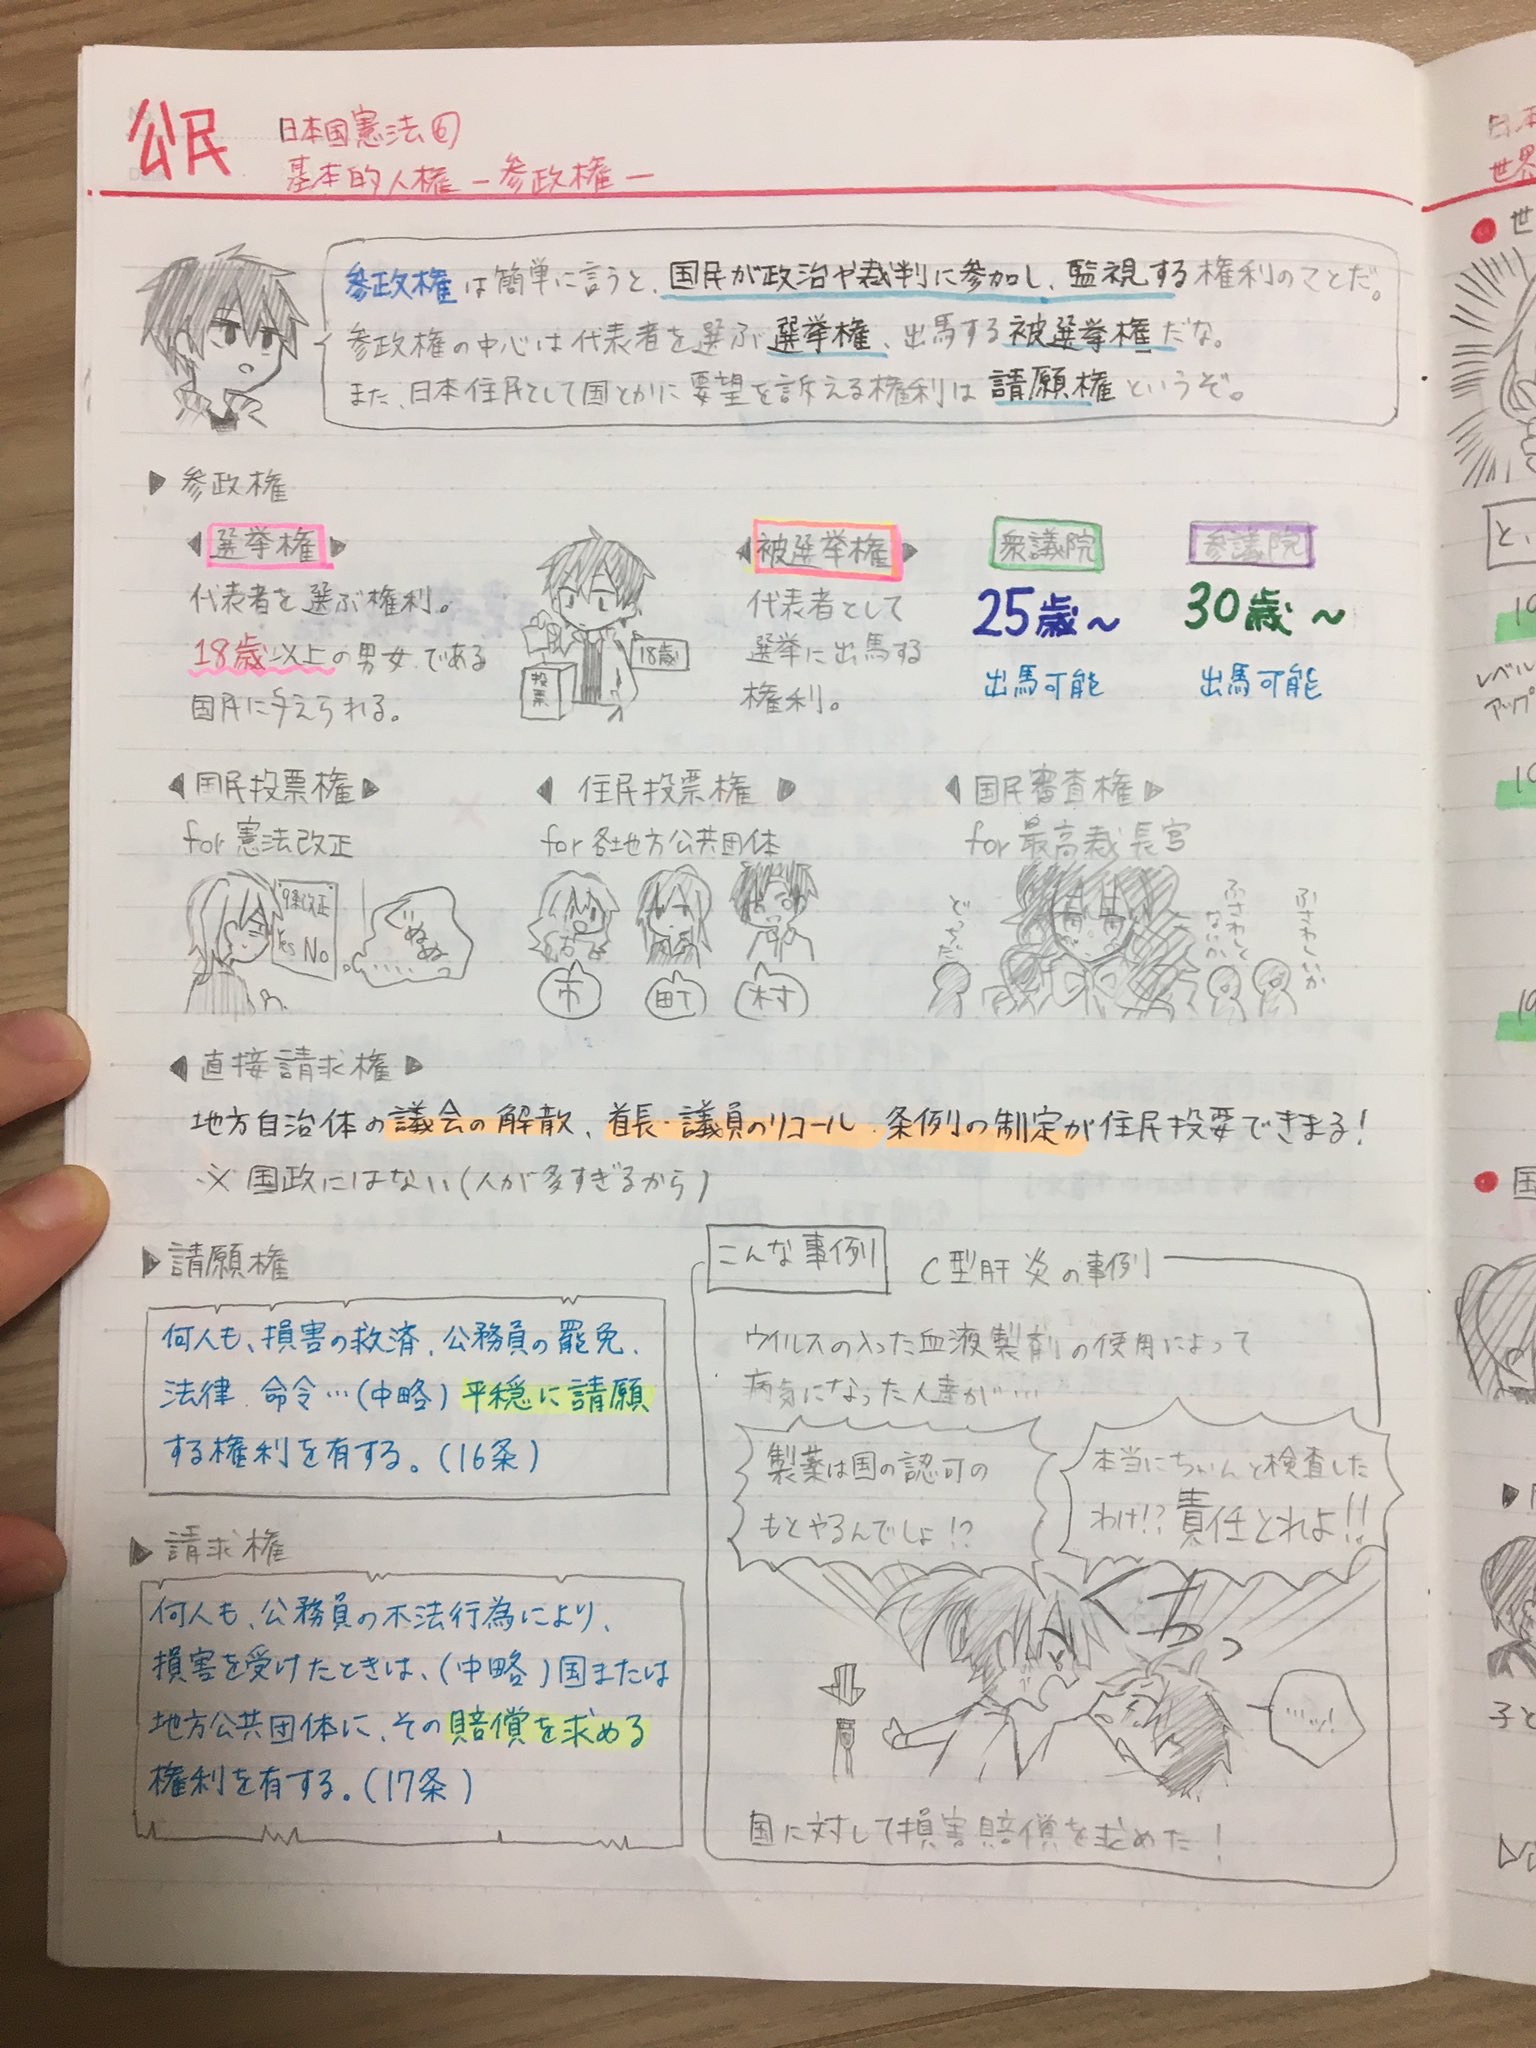 公民
日本国憲法⑥
基本的人権 ー参政権ー
参政権は簡単に言うと、国民が政治や裁判に参加し、監視する権利のことだ。
参政権の中心は代表者を選ぶ選挙権、出馬する被選挙権だな。
また、日本住民として国とかに要望を訴える権利は請願権というぞ。
▶参政権
◀選挙権▶
代表者を選ぶ権利。
18歳以上の男女である
国民に与えられる。
投票
18歳
◀被選挙権▶
代表者として
選挙に出馬する
権利。
衆議院
25歳〜
出馬可能
参議院
30歳〜
出馬可能
◀国民投票権▶
for 憲法改正
9条改正
Yes No
ぐぬぬ
……
◀住民投票権▶
for 各地方公共団体
市
町
村
◀国民審査権▶
for 最高裁長官
どっちだ
ふさわしく
ないか
ふさわしいか
◀直接請求権▶
地方自治体の議会の解散、首長・議員のリコール、条例の制定が住民投票できまる!
※国政にはない(人が多すぎるから)
▶請願権
何人も、損害の救済、公務員の罷免、
法律、命令…(中略)平穏に請願
する権利を有する。(16条)
▶請求権
何人も、公務員の不法行為により、
損害を受けたときは、(中略)国または
地方公共団体に、その賠償を求める
権利を有する。(17条)
こんな事例
C型肝炎の事例
ウイルスの入った血液製剤の使用によって
病気になった人達が…
製薬は国の認可の
もとやるんでしょ!?
本当にちゃんと検査した
わけ!?責任とれよ!!
……ッ!
国に対して損害賠償を求めた!